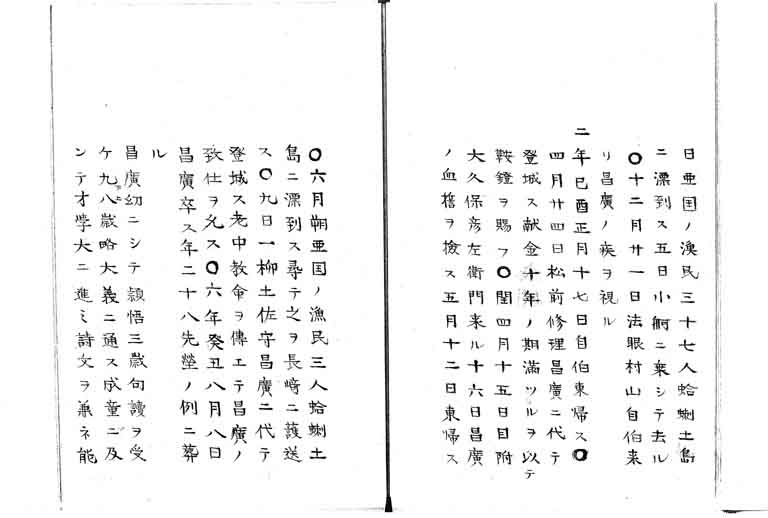 日亜国ノ漁民三十七人蛤蜊土島
ニ漂到ス五日小舸ニ乗シテ去ル
〇十二月廿一日法眼村山自伯来
リ昌廣ノ疾ヲ視ル
二年巳酉正月十七日自伯東帰ス〇
四月廿四日松前修理昌廣ニ代テ
登城ス献金十年ノ期満ツルヲ以テ
鞍鐙ヲ賜フ〇閏四月十五日目附
大久保彦左衛門来ル十六日昌廣
ノ血㨿ヲ検ス五月十二日東帰ス
〇六月朔亜国ノ漁民三人蛤蜊土
島ニ漂到ス尋テ之ヲ長﨑ニ護送
ス〇九日一柳土佐守昌廣ニ代テ
登城ス老中教命ヲ傳エテ昌廣ノ
致仕ヲ允ス〇六年癸丑八月八日
昌廣卒ス年二十八先塋ノ例ニ葬
ル
昌廣幼ニシテ頴悟三歳句讀ヲ受
ケ九八歳略大義ニ通ス成童ニ及
ンテ才學大ニ進ミ詩文ヲ兼ネ能